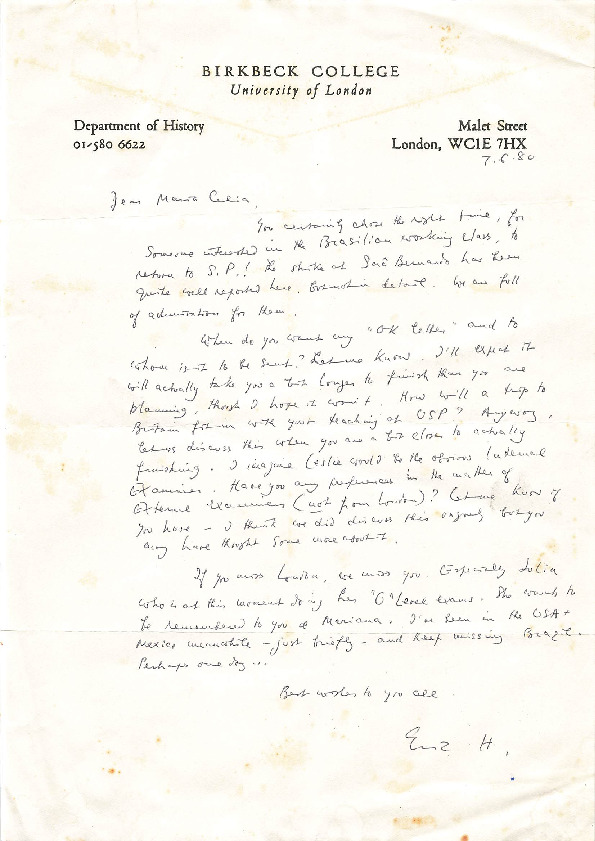 BIRKBECK COLLEGE
University of London
Department of History
Malet Street
01-580 6622
London, WC1E 7HX
7.6.80
Dear Maria Celia,
You certainly chose the right time, for
someone interested in the Brasilian working class, to
return to S.P.! The strike at Saõ Bernardo has been
quite well reported here, but not in detail. We are full
of admiration for them.
When do you want my "OK letter" and to
whom is it to be sent? Let me know. I'll expect it
will actually take you a bit longer to finish than you are
planning, though I hope it won't. How will a trip to
Britain fit in with your teaching at USP? Anyway,
let us discuss this when you are a bit closer to actually
finishing. I imagine Leslie would be the obvious internal
examiner. Have you any preferences in the matter of
External Examiners (not from London)? Let me know if
you have - I think we did discuss this vaguely but you
may have thought some more about it.
If you miss London, we miss you. Especially Julia
who is at this moment doing her "O" Level exams. She wants to
be remembered to you & Mariana. I've been in the USA +
Mexico meanwhile - just briefly - and keep missing Brazil.
Perhaps one day ...
Best wishes to you all
Eric H.